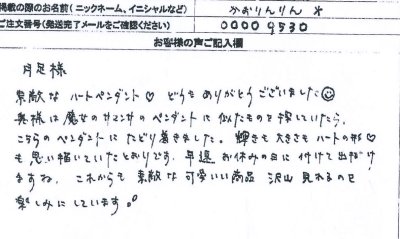 掲載の際のお名前(ニックネーム、イニシャルなど)
かおりんりん
ご注文番号(発送完了メールをご確認ください)
00009530
お客様の声ご記入欄
月足様
素敵な ハートペンダント♡ どうもありがとうございました☺
奥様は魔女のサマンサのペンダントに似たものを探していたら、
こちらのペンダントにたどり着きました。輝きも大きさもハートの形♡
も思い描いていたとおりです。早速お休みの日に付けて出かけ
ますね。これからも素敵な可愛いい商品 沢山見れるのを
楽しみにしています。